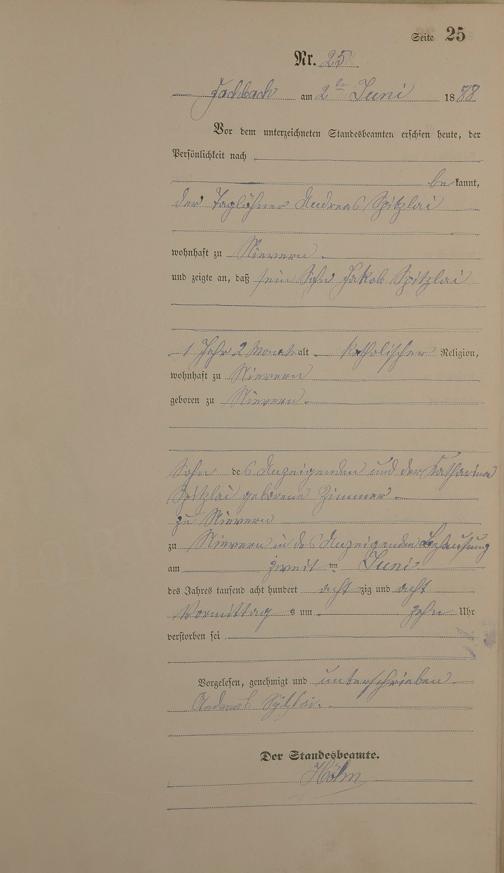 Seite 25
Nr. 25
Fachbach am 2ten Juni 1888
Vor dem unterzeichneten Standesbeamten erschien heute, der
Persönlichkeit nach
be kannt,
der Taglöhner Andreas Spitzlai
wohnhaft zu Nievern
und zeigte an, daß sein Sohn Jakob Spitzlai
1 Jahr 2 Monate alt katholischer Religion,
wohnhaft zu Nievern
geboren zu Nievern
Sohn des Anzeigenden und der Katharina
Spitzlai geborene Zimmer
zu Nievern
zu Nievern in des Anzeigenden Behausung
am zweiten Juni
des Jahres tausend acht hundert achtzig und acht
Vormittags um zehn Uhr
verstorben sei
Vorgelesen, genehmigt und unterschrieben
Andreas Spitzlai.
Der Standesbeamte.